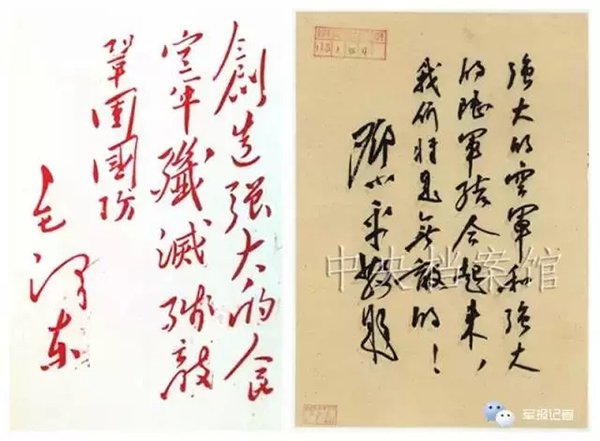 創造强大的人民
空軍殲滅残敵
鞏固國防
毛澤东
强大的空軍和强大
的陸軍结合起来，
我们将是无敵的！
鄧小平敬題
中央档案馆
军报记者